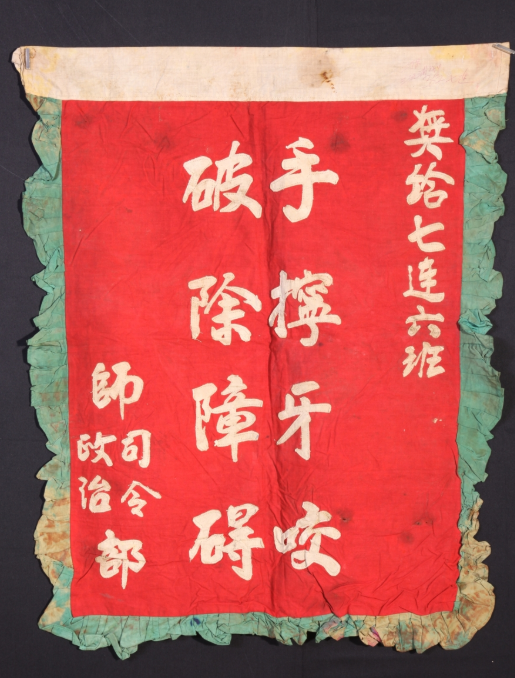 奬给七连六班
手擰牙咬
破除障碍
師司令政治部